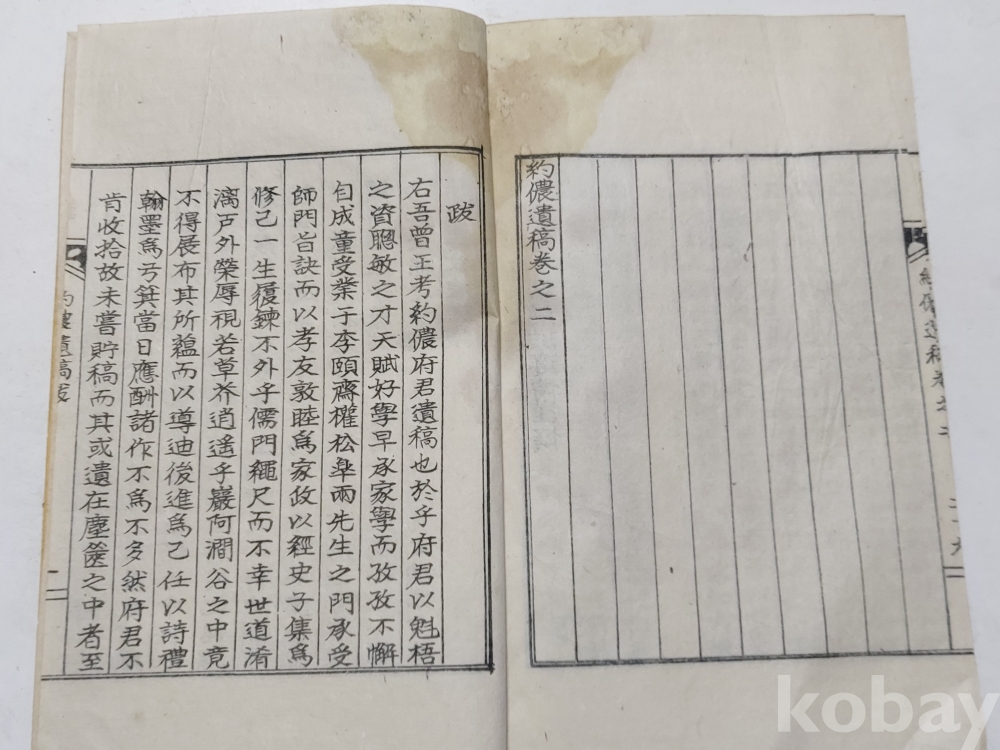 約儂遺稿卷之二
跋
右吾曾王考約儂府君遺稿也於乎府君以魁梧
之資聰敏之才天賦好學早承家學而孜孜不懈
自成童受業于李頤齋權松皐兩先生之門承受
師門旨訣而以孝友敦睦爲家政以經史子集爲
修己一生履鍊不外乎儒門繩尺而不幸世道淆
漓戶外榮辱視若草芥逍遙乎巖阿澗谷之中竟
不得展布其所蘊而以導迪後進爲己任以詩禮
翰墨爲弓箕當日應酬諸作不爲不多然府君不
肯收拾故未嘗貯稿而其或遺在塵篋之中者至
約儂遺稿跋
一
kobay